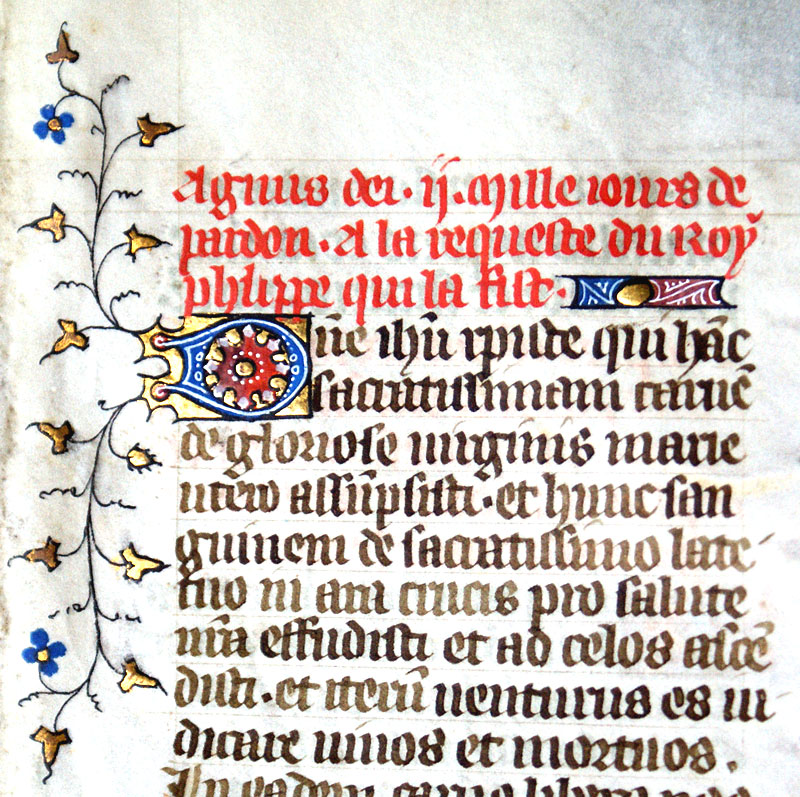 Agnus dei · ij · Mille iours de
pardon · A la requeste du Roy
phlippe qui la fist ·
Dñe ihũ xpiste qui hãc
sacratissimam carnẽ
de gloriose uirginis marie
utero assũpsisti · et hunc san
guinem de sacratissimo late
tuo ni ara crucis pro salute
nr̃a effudisti et ad celos ascẽ
disti · et iterũ uenturus es iu
dicare uiuos et mortuos .
In eadem carne libera nos